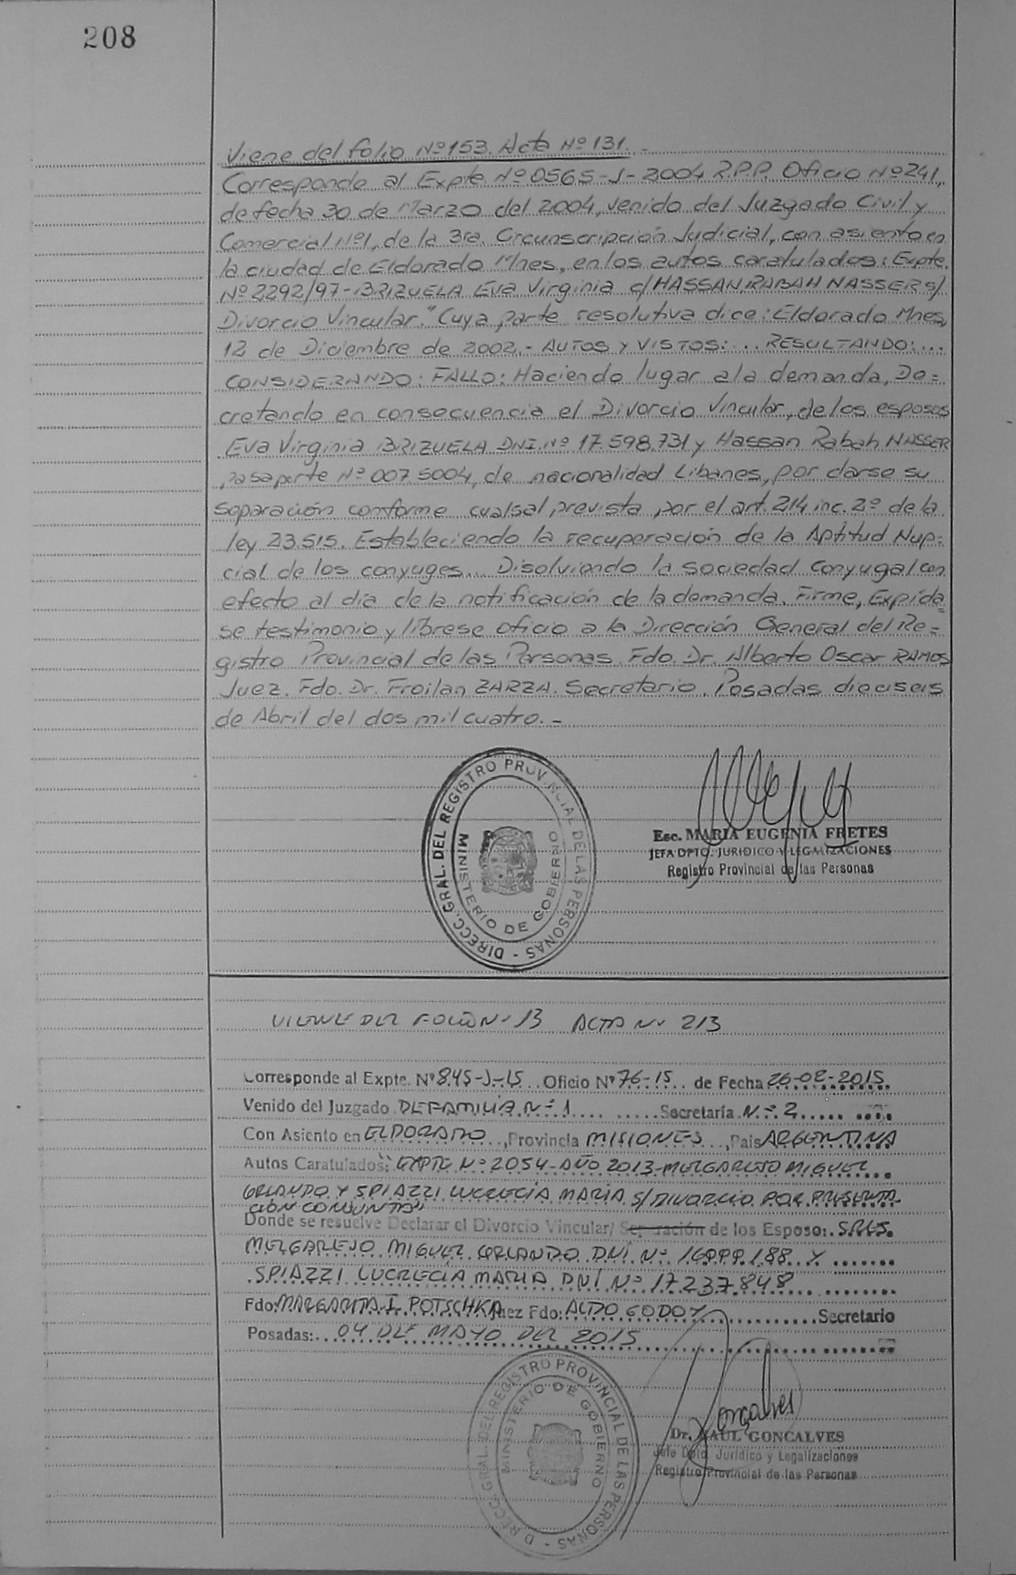 208
Viene del folio Nº 153. Acta Nº 131.-
Corresponde al Expte Nº 0565-J-2004 R.P.P. Oficio Nº 241,
de fecha 30 de Marzo del 2004, venido del Juzgado Civil y
Comercial Nº1, de la 3ra. Circunscripción Judicial, con asiento en
la ciudad de Eldorado Mnes, en los autos caratulados: Expte.
Nº 2292/97-BRIZUELA Eva Virginia c/HASSAN RABAH NASSER s/
Divorcio Vincular." Cuya parte resolutiva dice: Eldorado Mnes,
12 de Diciembre de 2002.- AUTOS Y VISTOS:... RESULTANDO:...
CONSIDERANDO: FALLO: Haciendo lugar a la demanda, De=
cretando en consecuencia el Divorcio Vincular, de los esposos
Eva Virginia BRIZUELA DNI. Nº 17.598.731 y Hassan Rabah NASSER
Pasaporte Nº 0075004, de nacionalidad Libanes, por darse su
separación conforme cualsal prevista por el art. 214 inc. 2º de la
ley 23.515. Estableciendo la recuperación de la Aptitud Nup=
cial de los conyuges... Disolviendo la sociedad conyugal con
efecto al dia de la notificación de la demanda. Firme, Expida
se testimonio y líbrese oficio a la Dirección General del Re=
gistro Provincial de las Personas. Fdo. Dr. Alberto Oscar RAMOS
Juez. Fdo. Dr. Froilan ZARZA. Secretario. Posadas dieciseis
de Abril del dos mil cuatro.-
DIRECC. GRAL. DEL REGISTRO PROVINCIAL DE LAS PERSONAS -
MINISTERIO DE GOBIERNO
Esc. MARIA EUGENIA FRETES
JEFA DPTO. JURIDICO Y LEGALIZACIONES
Registro Provincial de las Personas
VIENE DEL FOLIO Nº 13 ACTA Nº 213
Corresponde al Expte. Nº 845-J-15 Oficio Nº 76-15 de Fecha 26-02-2015
Venido del Juzgado DE FAMILIA Nº 1 Secretaría Nº 2
Con Asiento en ELDORADO, Provincia MISIONES, País ARGENTINA
Autos Caratulados: "EXPTE Nº 2054-AÑO 2013-MELGAREJO MIGUEL
ORLANDO Y SPIAZZI LUCRECIA MARIA S/DIVORCIO POR PRESENTA-
CIÓN CONJUNTA"
Donde se resuelve Declarar el Divorcio Vincular/ Separación de los Esposo: SRES.
MELGAREJO MIGUEL ORLANDO DNI. Nº 16.999.188 Y
SPIAZZI LUCRECIA MARIA DNI Nº 17.237.848
Fdo: MARGARITA I. POTSCHKA Juez Fdo: ALDO GODOY Secretario
Posadas: 04 DE MAYO DEL 2015
DIRECC. GRAL. DEL REGISTRO PROVINCIAL DE LAS PERSONAS -
MINISTERIO DE GOBIERNO
Gonçalves
Dr. RAUL GONCALVES
Jefe Dpto. Jurídico y Legalizaciones
Registro Provincial de las Personas